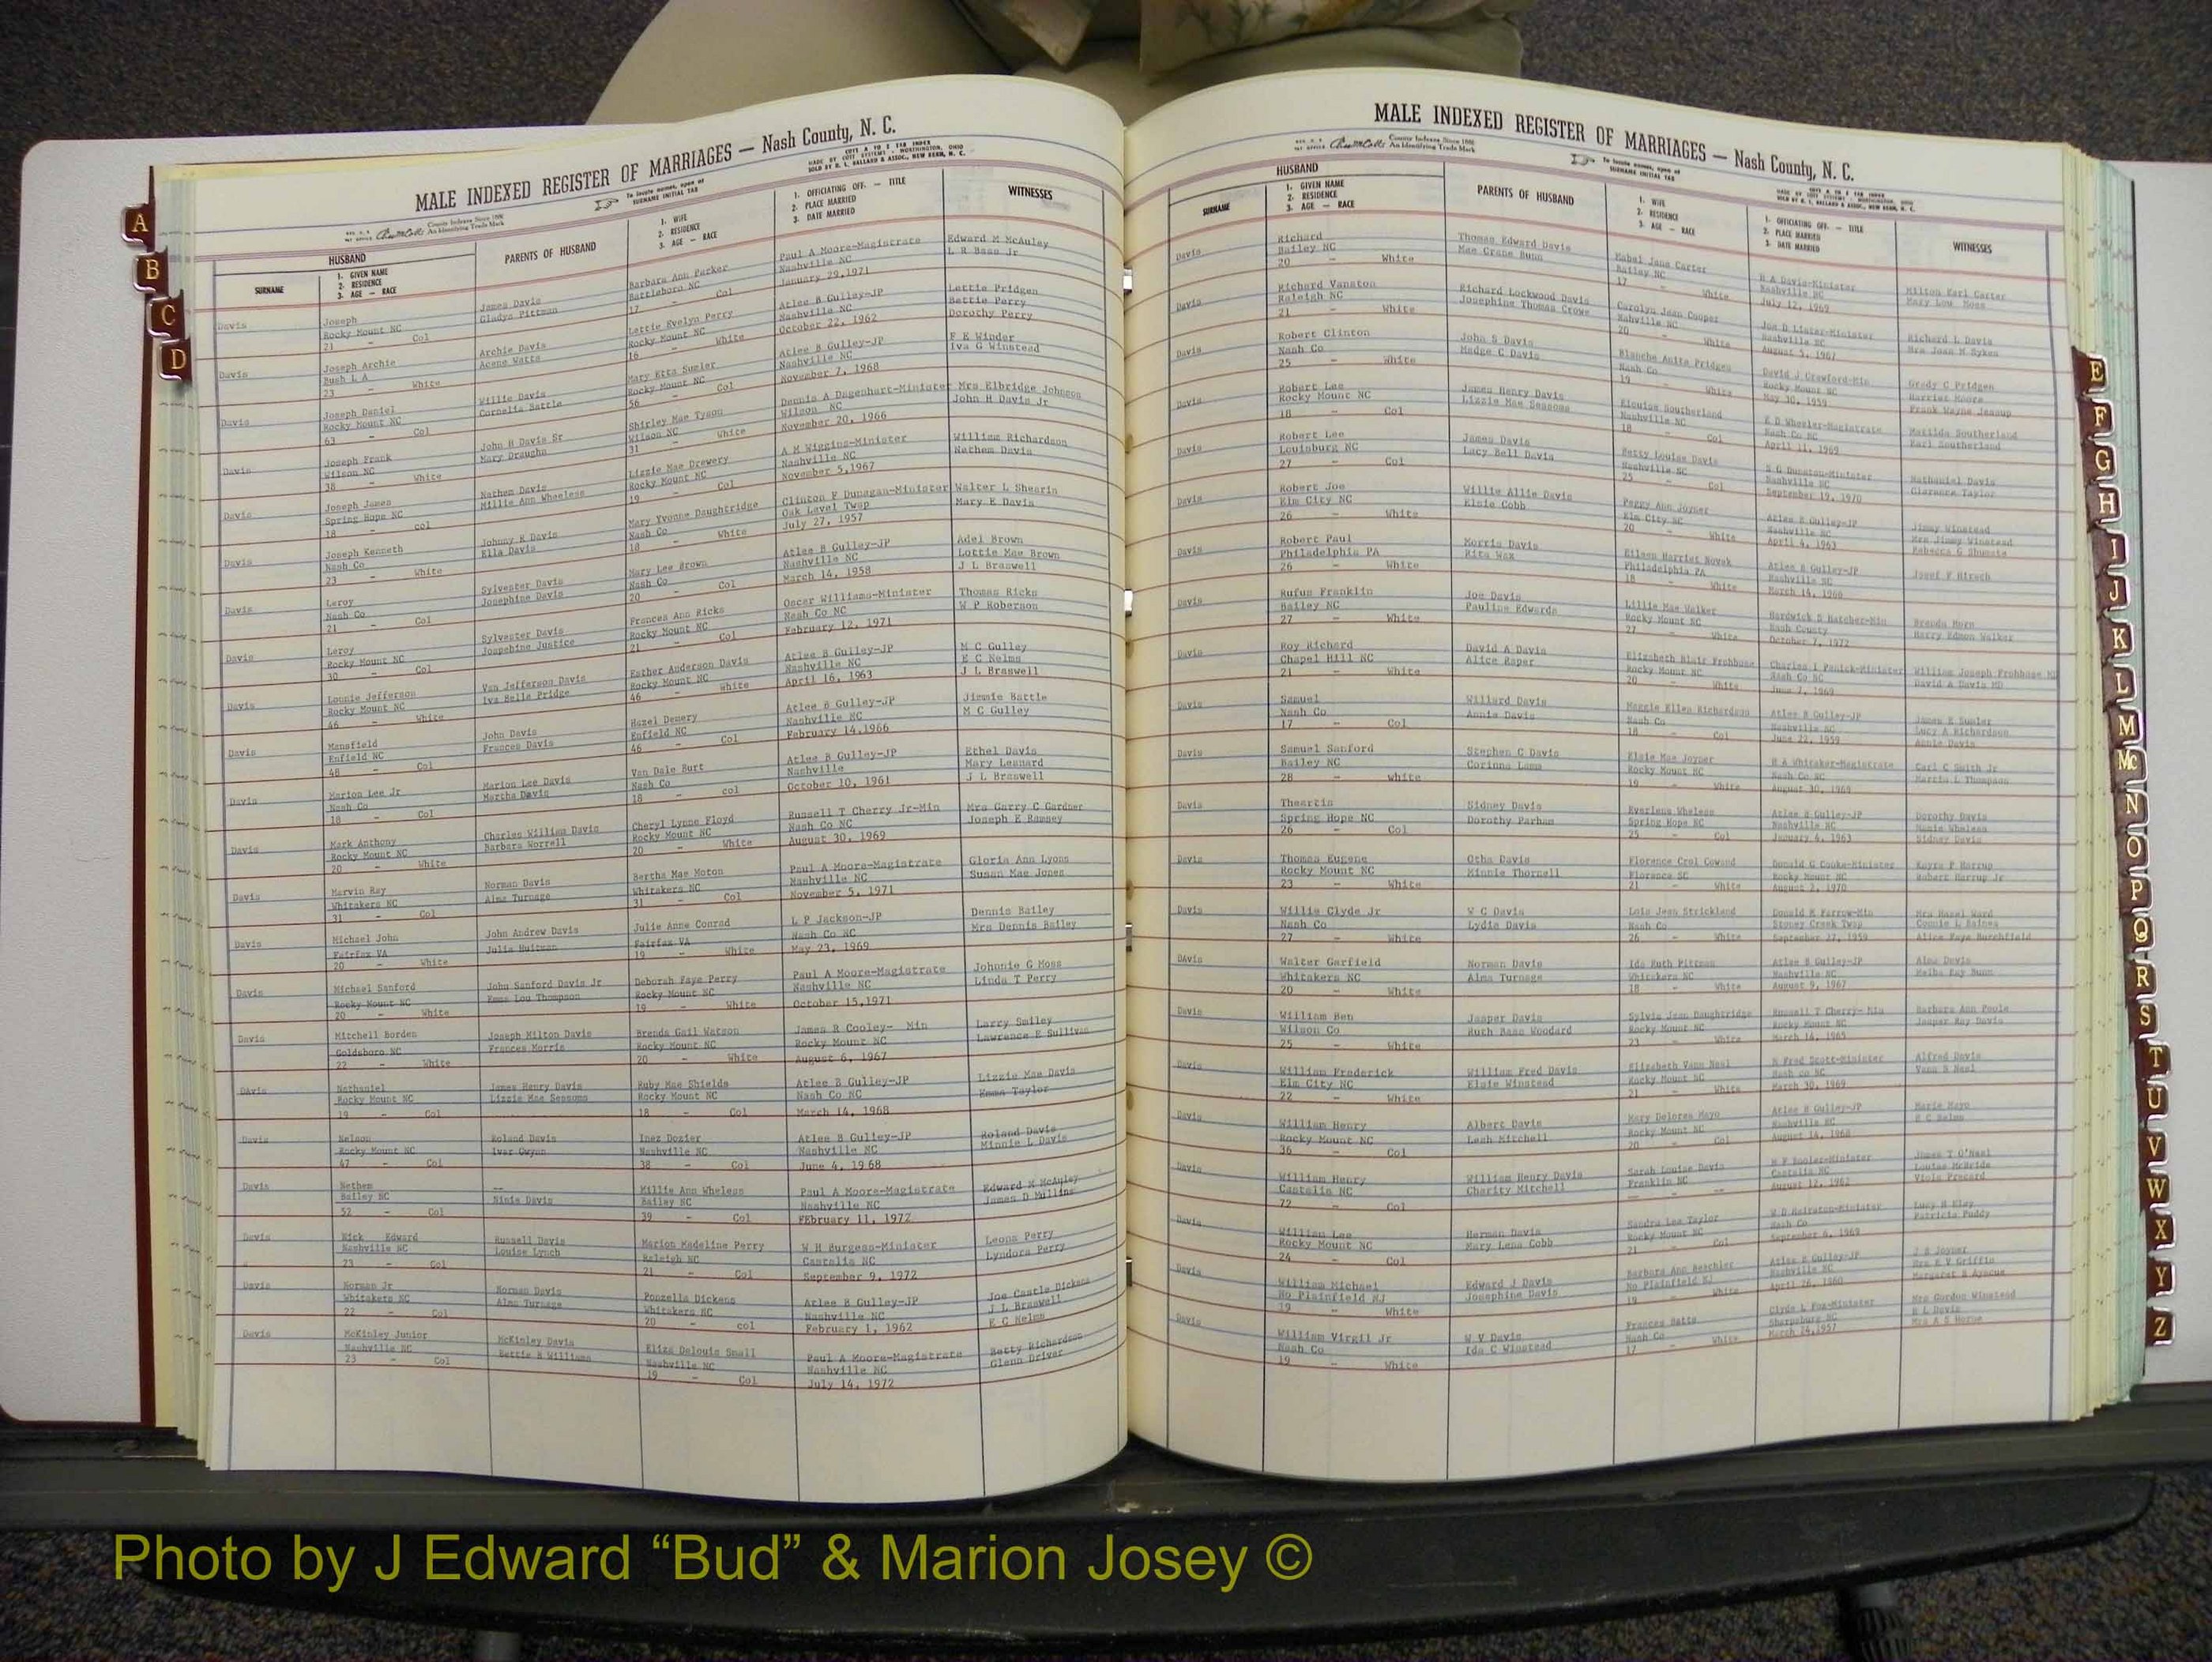 MALE INDEXED REGISTER OF MARRIAGES — Nash County, N. C.
To locate names, open at
SURNAME INITIAL TAB
HUSBAND
SURNAME
1. GIVEN NAME
2. RESIDENCE
3. AGE — RACE
PARENTS OF HUSBAND
1. WIFE
2. RESIDENCE
3. AGE — RACE
1. OFFICIATING OFF. — TITLE
2. PLACE MARRIED
3. DATE MARRIED
WITNESSES
Davis Joseph James Davis Barbara Ann Parker Paul A Moore-Magistrate Edward M McAuley
Rocky Mount NC Gladys Pittman Battleboro NC Nashville NC L R Bass Jr
21 - Col 17 - Col January 29,1971
Davis Joseph Archie Archie Davis Lettie Evelyn Perry Atlee B Gulley-JP Lettie Pridgen
Bush L A Acene Watts Rocky Mount NC Nashville NC Bettie Perry
23 - White 16 - White October 22, 1962 Dorothy Perry
Davis Joseph Daniel Willie Davis Mary Etta Sumler Atlee B Gulley-JP F E Winder
Rocky Mount NC Cornelia Battle Rocky Mount NC Nashville NC Iva G Winstead
63 - Col 56 - Col November 7, 1968
Davis Joseph Frank John H Davis Sr Shirley Mae Tyson Dennis A Dagenhart-Minister Mrs Elbridge Johnson
Wilson NC Mary Draughn Wilson NC Wilson NC John H Davis Jr
38 - White 31 - White November 20, 1966
Davis Joseph James Nathen Davis Lizzie Mae Drewery A M Wiggins-Minister William Richardson
Spring Hope NC Millie Ann Wheless Rocky Mount NC Nashville NC Nathem Davis
18 - col 19 - Col November 5,1967
Davis Joseph Kenneth Johnny R Davis Mary Yvonne Daughtridge Clinton F Dunagan-Minister Walter L Shearin
Nash Co Ella Davis Nash Co Oak Level Twsp Mary E Davis
23 - White 18 - White July 27, 1957
Davis Leroy Sylvester Davis Mary Lee Brown Atlee B Gulley-JP Adel Brown
Nash Co Josephine Davis Nash Co Nashville NC Lottie Mae Brown
21 - Col 20 - Col March 14, 1958 J L Braswell
Davis Leroy Sylvester Davis Frances Ann Ricks Oscar Williams-Minister Thomas Ricks
Rocky Mount NC Josephine Justice Rocky Mount NC Nash Co NC W P Roberson
30 - Col 21 - Col February 12, 1971
Davis Lonnie Jefferson Van Jefferson Davis Esther Anderson Davis Atlee B Gulley-JP M C Gulley
Rocky Mount NC Iva Belle Pridge Rocky Mount NC Nashville NC E C Nelms
46 - White 46 - White April 16, 1963 J L Braswell
Davis Mansfield John Davis Hazel Demery Atlee B Gulley-JP Jimmie Battle
Enfield NC Frances Davis Enfield NC Nashville NC M C Gulley
48 - Col 46 - Col February 14,1966
Davis Marion Lee Jr Marion Lee Davis Van Dale Burt Atlee B Gulley-JP Ethel Davis
Nash Co Martha Davis Nash Co Nashville Mary Leonard
18 - Col 18 - col October 10, 1961 J L Braswell
Davis Mark Anthony Charles William Davis Cheryl Lynne Floyd Russell T Cherry Jr-Min Mrs Garry C Gardner
Rocky Mount NC Barbara Worrell Rocky Mount NC Nash Co NC Joseph E Ramsey
20 - White 20 - White August 30, 1969
Davis Marvin Ray Norman Davis Bertha Mae Moton Paul A Moore-Magistrate Gloria Ann Lyons
Whitakers NC Alma Turnage Whitakers NC Nashville NC Susan Mae Jones
31 - Col 31 - Col November 5, 1971
Davis Michael John John Andrew Davis Julie Anne Conrad L P Jackson-JP Dennis Bailey
Fairfax VA Fairfax VA Nash Co NC Mrs Dennis Bailey
20 - White 19 - White May 23, 1969
Davis Michael Sanford John Sanford Davis Jr Deborah Faye Perry Paul A Moore-Magistrate Johnnie G Moss
Rocky Mount NC Emma Lou Thompson Rocky Mount NC Nashville NC Linda T Perry
20 - White 19 - White October 15,1971
Davis Mitchell Borden Joseph Milton Davis Brenda Gail Watson James R Cooley- Min Larry Smiley
Goldsboro NC Frances Morris Rocky Mount NC Rocky Mount NC Lawrence E Sullivan
22 - White 20 - White August 6, 1967
DAvis Nathaniel James Henry Davis Ruby Mae Shields Atlee B Gulley-JP Lizzie Mae Davis
Rocky Mount NC Lizzie Mae Sessoms Rocky Mount NC Nash Co NC Emma Taylor
19 - Col 18 - Col March 14, 1968
Davis Nelson Roland Davis Inez Dozier Atlee B Gulley-JP Roland Davis
Rocky Mount NC Nashville NC Nashville NC Minnie L Davis
47 - Col 38 - Col June 4, 1968
Davis Nethem -- Millie Ann Wheless Paul A Moore-Magistrate Edward M McAuley
Bailey NC Ninie Davis Bailey NC Nashville NC James D Mullins
52 - Col 39 - Col FEbruary 11, 1972
Davis Nick Edward Russell Davis Marion Madeline Perry W H Burgess-Minister Leona Perry
Nashville NC Louise Lynch Raleigh NC Castalia NC Lyndora Perry
23 - Col 21 - Col September 9, 1972
Davis Norman Jr Norman Davis Ponzella Dickens Atlee B Gulley-JP Joe Castle Dickens
Whitakers NC Alma Turnage Whitakers NC Nashville NC J L Braswell
22 - Col 20 - col February 1, 1962 E C Nelms
Davis McKinley Junior McKinley Davis Eliza Delouis Snall Paul A Moore-Magistrate Betty Richardson
Nashville NC Bettie B Williams Nashville NC Nashville NC Glenn Driver
23 - Col 19 - Col July 14, 1972
MALE INDEXED REGISTER OF MARRIAGES — Nash County, N. C.
To locate names, open at
SURNAME INITIAL TAB
HUSBAND
SURNAME
1. GIVEN NAME
2. RESIDENCE
3. AGE — RACE
PARENTS OF HUSBAND
1. WIFE
2. RESIDENCE
3. AGE — RACE
1. OFFICIATING OFF. — TITLE
2. PLACE MARRIED
3. DATE MARRIED
WITNESSES
Davis Richard Thomas Edward Davis Mabel Jane Carter R A Davis-Minister Milton Earl Carter
Bailey NC Mae Crane Bunn Bailey NC Nashville NC Mary Lou Moss
20 - White 17 - White July 12, 1969
Davis Richard Vanston Richard Lockwood Davis Carolyn Jean Cooper Joe D Lister-Minister Richard L Davis
Raleigh NC Josephine Thomas Crowe Nahville NC Nashville NC Mrs Joan M Sykes
21 - White 20 - White August 5, 1967
Davis Robert Clinton John S Davis Blanche Anita Pridgen David J Crawford-Min Grady C Pridgen
Nash Co Madge C Davis Nash Co Rocky Mount NC Harriet Moore
25 - White 19 - White May 30, 1959 Frank Wayne Jessup
Davis Robert Lee James Henry Davis Elouise Southerland E D Wheeler-Magistrate Matilda Southerland
Rocky Mount NC Lizzie Mae Sessoms Nashville NC Nash Co NC Earl Southerland
18 - Col 18 - Col April 11, 1969
Davis Robert Lee James Davis Betty Louise Davis S G Dunston-Minister Nathaniel Davis
Louisburg NC Lucy Bell Davis Nashville NC Nashville NC Clarence Taylor
27 - Col 25 - Col September 19, 1970
Davis Robert Joe Willie Allie Davis Peggy Ann Joyner Atlee B Gulley-JP Jimmy Winstead
Elm City NC Elsie Cobb Elm City NC Nashville NC Mrs Jimmy Winstead
26 - White 20 - White April 4, 1963
Davis Robert Paul Morris Davis Eileen Harriet Novak Atlee B Gulley-JP Josef F Hirsch
Philadelphia PA Rita Wax Philadelphia PA Nashville NC
26 - White 18 - White March 14, 1960
Davis Rufus Franklin Joe Davis Lillie Mae Walker Hardwick S Hatcher-Min Brenda Horn
Bailey NC Pauline Edwards Rocky Mount NC Nash County Harry Edmon Walker
27 - White 27 - White October 7, 1972
Davis Roy Richard David A Davis Elizabeth Blair Frohbose William Joseph Frohbose MD
Chapel Hill NC Alice Raper Rocky Mount NC Nash Co NC David A Davis MD
21 - White 20 - White June 7, 1969
Davis Samuel Willard Davis Maggie Ellen Richardson Atlee B Gulley-JP James E Sumler
Nash Co Annie Davis Nash Co Nashville NC Lucy A Richardson
17 - Col 18 - Col June 22, 1959 Annie Davis
Davis Samuel Sanford Stephen C Davis Elsie Mae Joyner R A Whitaker-Magistrate Carl C Smith Jr
Bailey NC Corinna Lamm Rocky Mount NC Nash Co NC Martin L Thompson
28 - white 19 - White August 30, 1969
Davis Theartis Sidney Davis Everlene Wheless Atlee B Gulley-JP Dorothy Davis
Spring Hope NC Dorothy Parham Spring Hope NC Nashville NC
26 - Col 25 - Col January 4, 1963 Sidney Davis
Davis Thomas Eugene Otha Davis Florence Crol Coward Donald G Cooke-Minister
Rocky Mount NC Minnie Thornell Florence SC Rocky Mount NC Robert Harrup Jr
23 - White 21 - White August 2, 1970
Davis Willie Clyde Jr W C Davis Lois Jean Strickland Donald K Farrow-Min Mrs Hazel Ward
Nash Co Lydia Davis Nash Co Stoney Creek Twsp Connie L Baines
27 - White 26 - White September 27, 1959 Alice Faye Burchfield
DAvis Walter Garfield Norman Davis Ida Ruth Pittman Atlee B Gulley-JP Alma Davis
Whitakers NC Alma Turnage Whitakers NC Nashville NC Melba Ray Bunn
20 - White 18 - White August 9, 1967
Davis William Ben Jasper Davis Sylvia Jean Daughtridge Russell T Cherry- Min Barbara Ann Poole
Wilson Co Ruth Bass Woodard Rocky Mount NC Rocky Mount NC Jasper Ray Davis
25 - White 23 - White
Davis William Frederick William Fred Davis Elizabeth Vann Neal R Fred Scott-Minister Alfred Davis
Elm City NC Elsie Winstead Rocky Mount NC Nash co NC Vann S Neal
22 - White 21 - White March 30, 1969
Davis William Henry Albert Davis Mary Delores Mayo Atlee B Gulley-JP Marie Mayo
Rocky Mount NC Leah Mitchell Rocky Mount NC Nashville NC E C Nelms
36 - Col 20 - Col August 14, 1968
Davis William Henry William Henry Davis Sarah Louise Davis James T O'Neal
Castalia NC Charity Mitchell Franklin NC Castalia NC Louise McBride
72 - Col -- - -- August 12, 1962
Davis William Lee Herman Davis Sandra Lee Taylor Lucy H Kley
Rocky Mount NC Mary Lena Cobb Rocky Mount NC Nash Co Patricia Puddy
24 - Col 21 - Col September 6, 1969
Davis William Michael Edward J Davis Barbara Ann Beechler Atlee B Gulley-JP J B Joyner
No Plainfield NJ Josephine Davis No Plainfield NJ Nashville NC Mrs E V Griffin
19 - White 19 - White April 26, 1960 Margaret B Ayscue
Davis William Virgil Jr W V Davis Frances Batts Clyde L Fux-Minister Mrs Gordon Winstead
Nash Co Ida C Winstead Nash Co Sharpsburg NC B L Davis
19 - White 17 - White March 24,1957 Mrs A S Horne
A
B
C
D
E
F
G
H
I
J
K
L
M
Mc
N
O
P
Q
R
S
T
U
V
W
X
Y
Z
Photo by J Edward “Bud” & Marion Josey ©